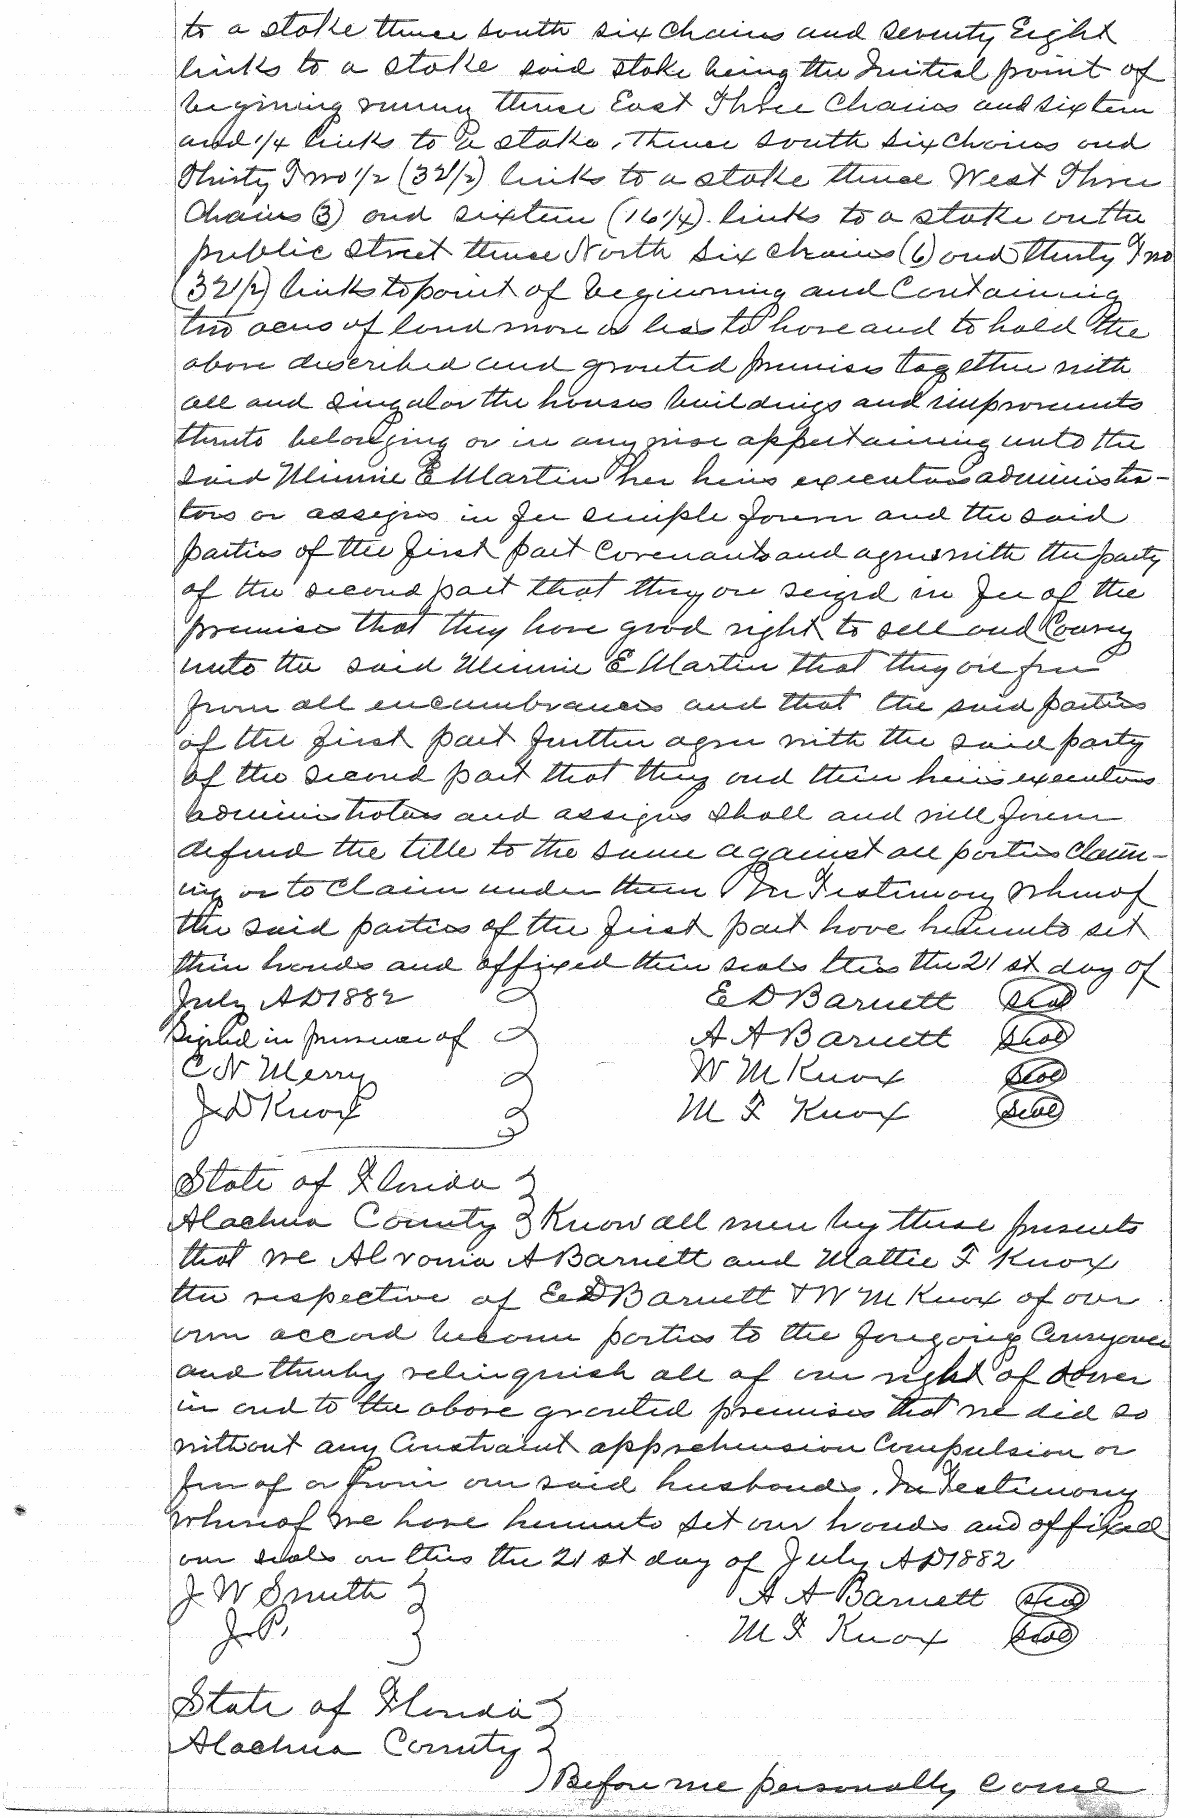 to a stake thence south six chains and seventy Eight
links to a stake said stake being the Initial point of
begining runing thence East Three Chains and sixteen
and 1/4 links to a stake, Thence south six chains and
Thirty Two 1/2 (32 1/2) links to a stake thence West Three
Chains (3) and sixteen (16 1/4) links to a stake on the
public street thence North six chains (6) and thirty Two
(32 1/2) links to point of beginning and Containing
two acres of land more or less to have and to hold the
above described and granted premises together with
all and singular the houses buildings and improvements
thereto belonging or in any wise appertaining unto the
said Minnie E Martin her heirs executors administra-
tors or assigns in fee simple forever and the said
parties of the first part Covenants and agrees with the party
of the second part that they are seized in fee of the
premises that they have good right to sell and Convey
unto the said Minnie E Martin that they are free
from all encumbrances and that the said parties
of the first part further agree with the said party
of the second part that they and their heirs executors
administrators and assigns shall and will forever
defend the title to the same against all parties claim-
ing or to claim under them In Testimony Whereof
the said parties of the first part have hereunto set
their hands and affixed their seals this the 21st day of
July AD 1882 E D Barnett Seal
Signed in presence of A A Barnett Seal
C N Merry W M Knox Seal
J D Knox M F Knox Seal
State of Florida
Alachua County Know all men by these presents
that we Alvonia A Barnett and Mattie F Knox
the respective of E D Barnett & W M Knox of our
own accord become parties to the foregoing Conveyance
and thereby relinquish all of our right of dower
in and to the above granted premises that we did so
without any Constraint apprehension Compulsion or
fear of or from our said husbands. In Testimony
whereof we have hereunto set our hands and affixed
our seals on this the 21st day of July AD 1882
J W Smith A A Barnett Seal
J.P. M F Knox Seal
State of Florida
Alachua County
Before me personally come